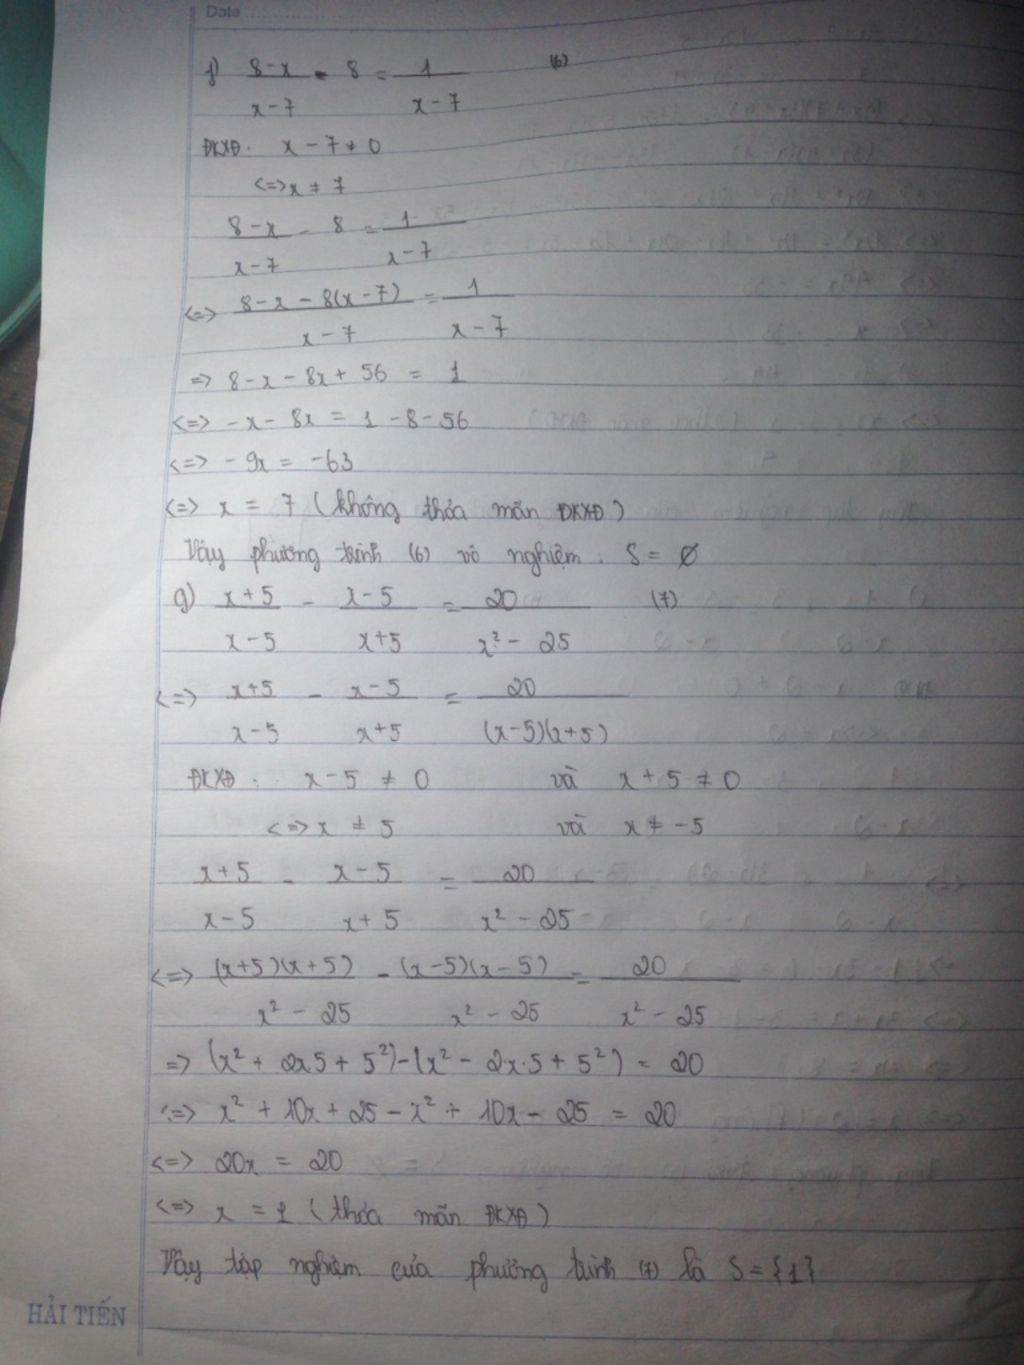 Date
f) 8-x/x-7 - 8 = 1/x-7 (6)
ĐKXĐ: x-7 ≠ 0
<=> x ≠ 7
8-x/x-7 - 8 = 1/x-7
<=> 8-x-8(x-7)/x-7 = 1/x-7
=> 8-x-8x+56 = 1
<=> -x-8x = 1-8-56
<=> -9x = -63
<=> x = 7 (không thỏa mãn ĐKXĐ)
Vậy phương trình (6) vô nghiệm. S = ∅
g) x+5/x-5 - x-5/x+5 = 20/x²-25 (7)
<=> x+5/x-5 - x-5/x+5 = 20/(x-5)(x+5)
ĐKXĐ: x-5 ≠ 0 và x+5 ≠ 0
<=> x ≠ 5 và x ≠ -5
x+5/x-5 - x-5/x+5 = 20/x²-25
<=> (x+5)(x+5)/x²-25 - (x-5)(x-5)/x²-25 = 20/x²-25
=> (x²+2x5+5²)-(x²-2x.5+5²) = 20
<=> x²+10x+25-x²+10x-25 = 20
<=> 20x = 20
<=> x = 1 (thỏa mãn ĐKXĐ)
Vậy tập nghiệm của phương trình (7) là S={1}
HẢI TIẾN